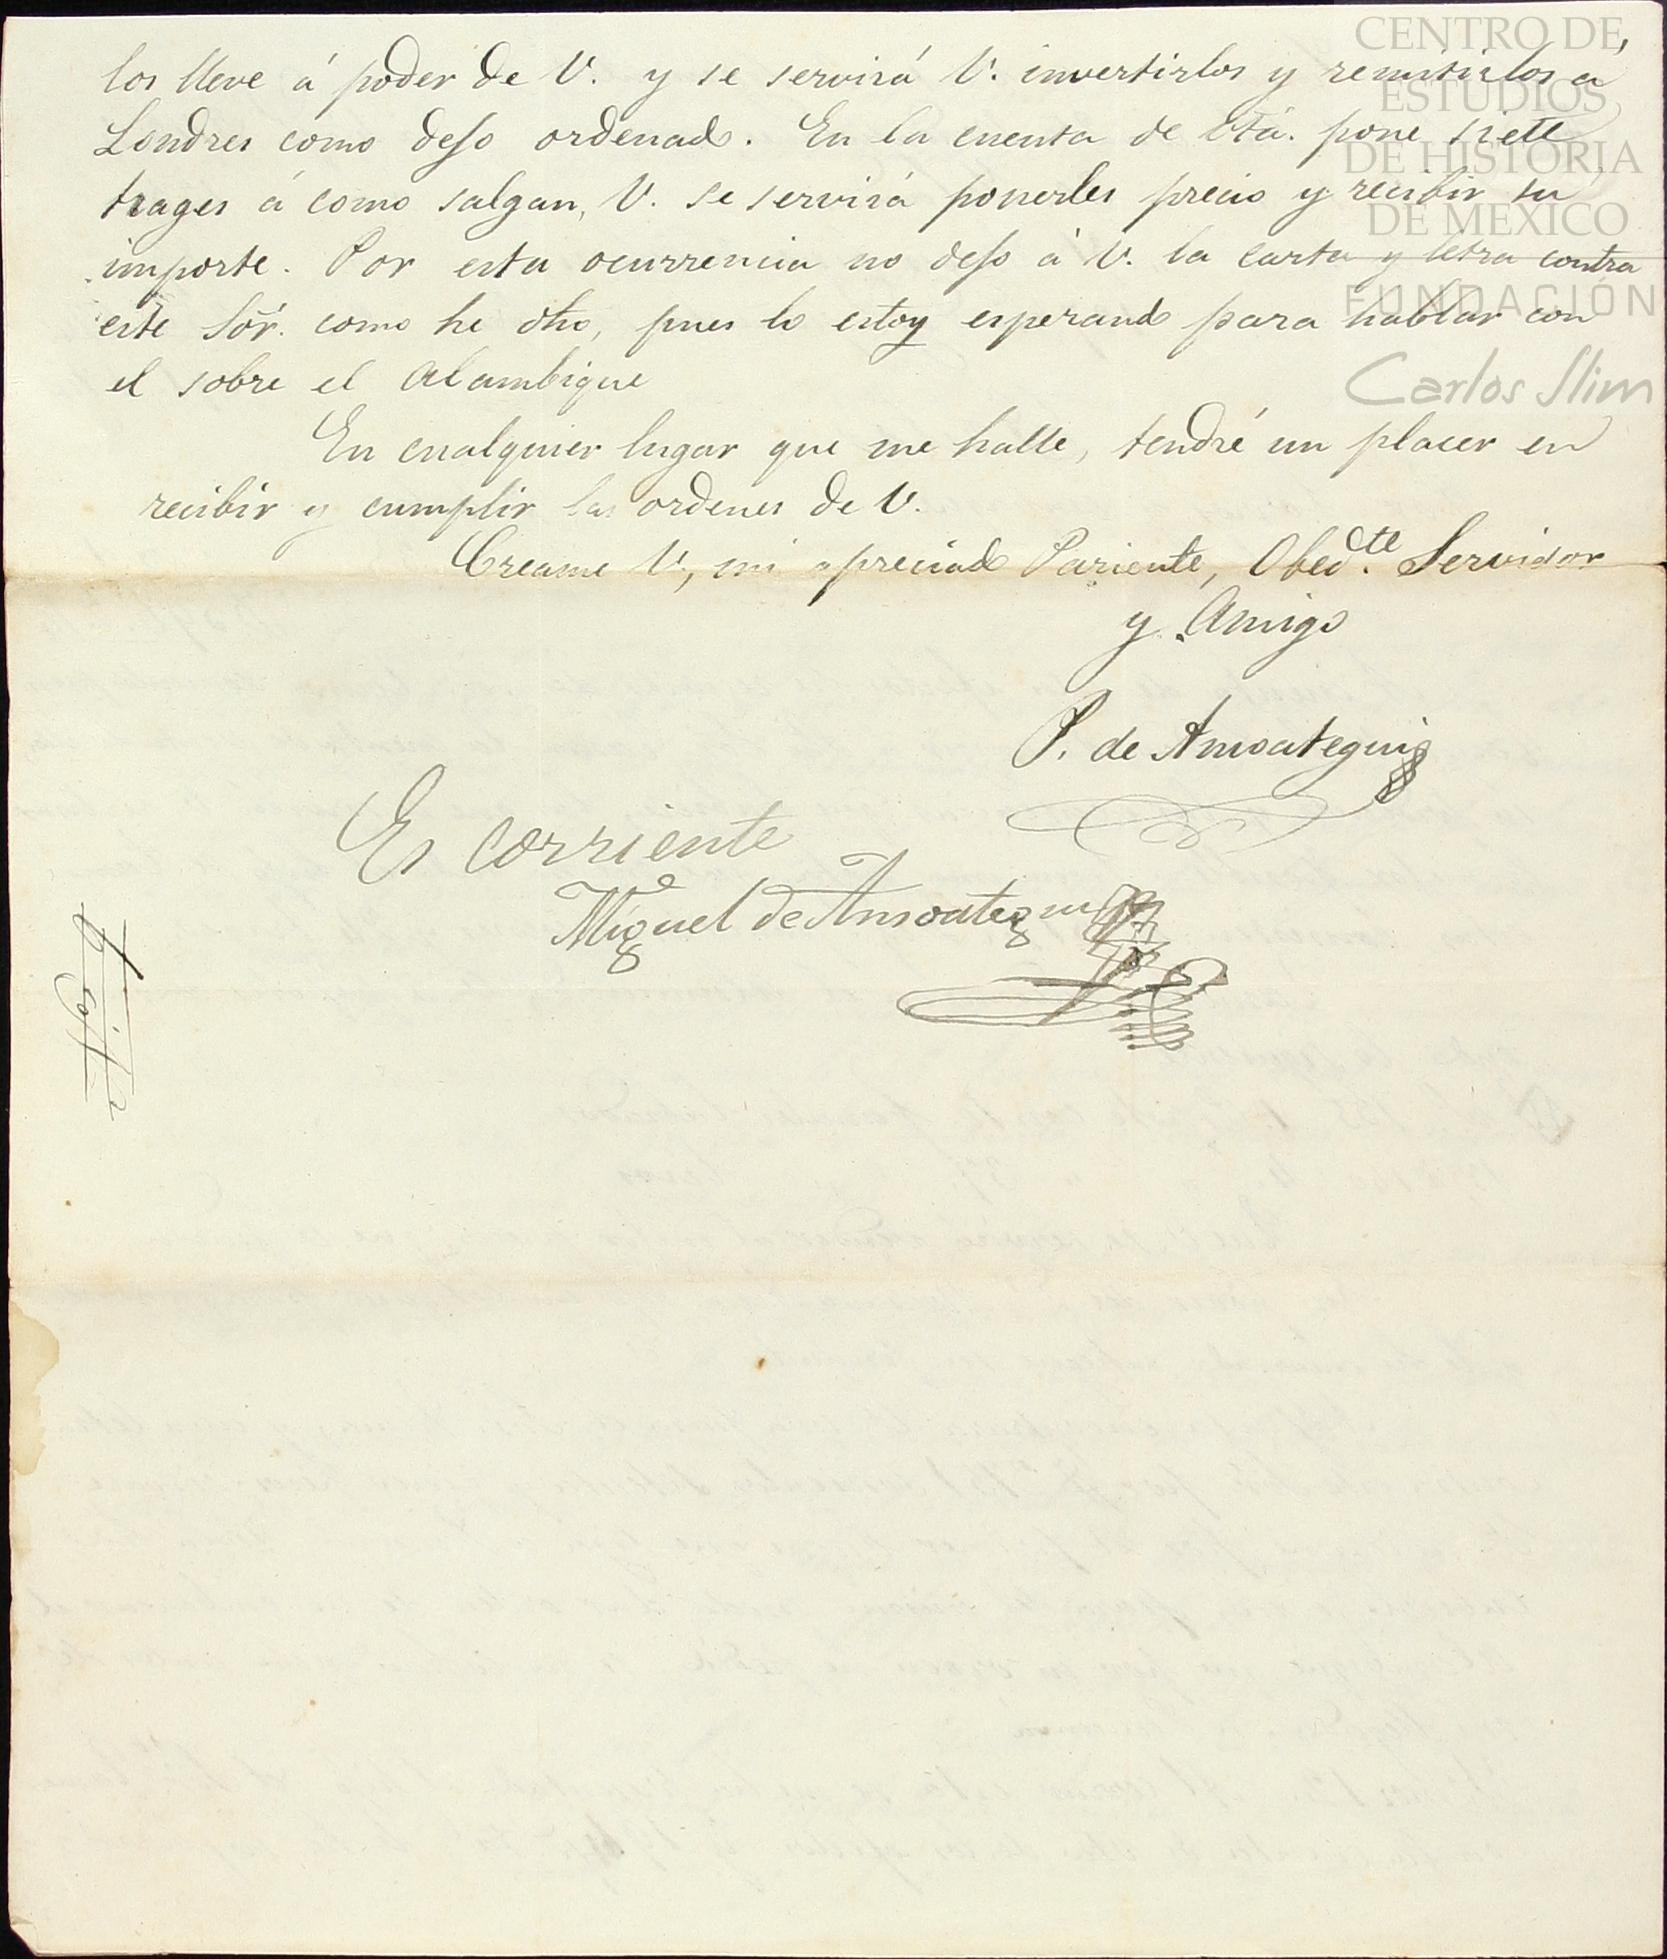 los lleve á poder de V. y se servirá V. invertirlos y remitirlos a
Londres como dejo ordenado. En la cuenta de Otá. pone siete
trages á como salgan, V. se servirá ponerles precio y recibir su
importe. Por esta ocurrencia no dejo á V. la carta y letra contra
este Sór. como he dho, pues lo estoy esperando para hablar con
el sobre el Alambique
En cualquier lugar que me halle, tendré un placer en
recibir y cumplir las ordenes de V.
Creame V, mi apreciado Pariente, Obed.te Servidor
y Amigo
P. de Amoategui
Es corriente
Miguel de Amoategui
CENTRO DE
ESTUDIOS
DE HISTORIA
DE MEXICO
FUNDACIÓN
Carlos Slim